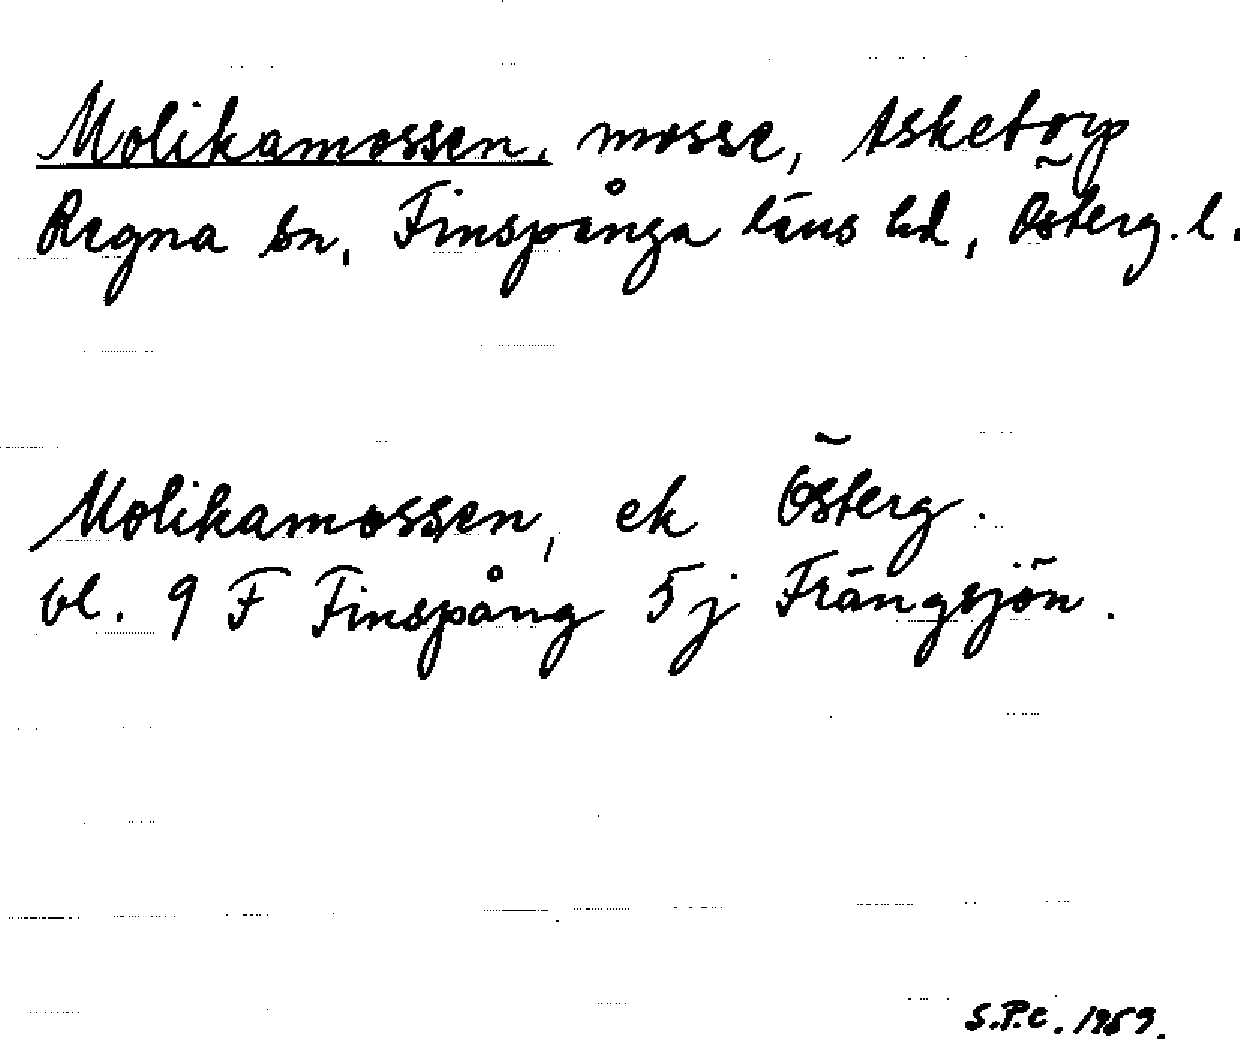 Molikamossen, mosse, Asketorp
Regna sn, Finspånga läns hd, Österg. l.
Molikamossen, ek Österg.
bl. 9 F Finspång 5 j Frängsjön.
S.P.C. 1959.